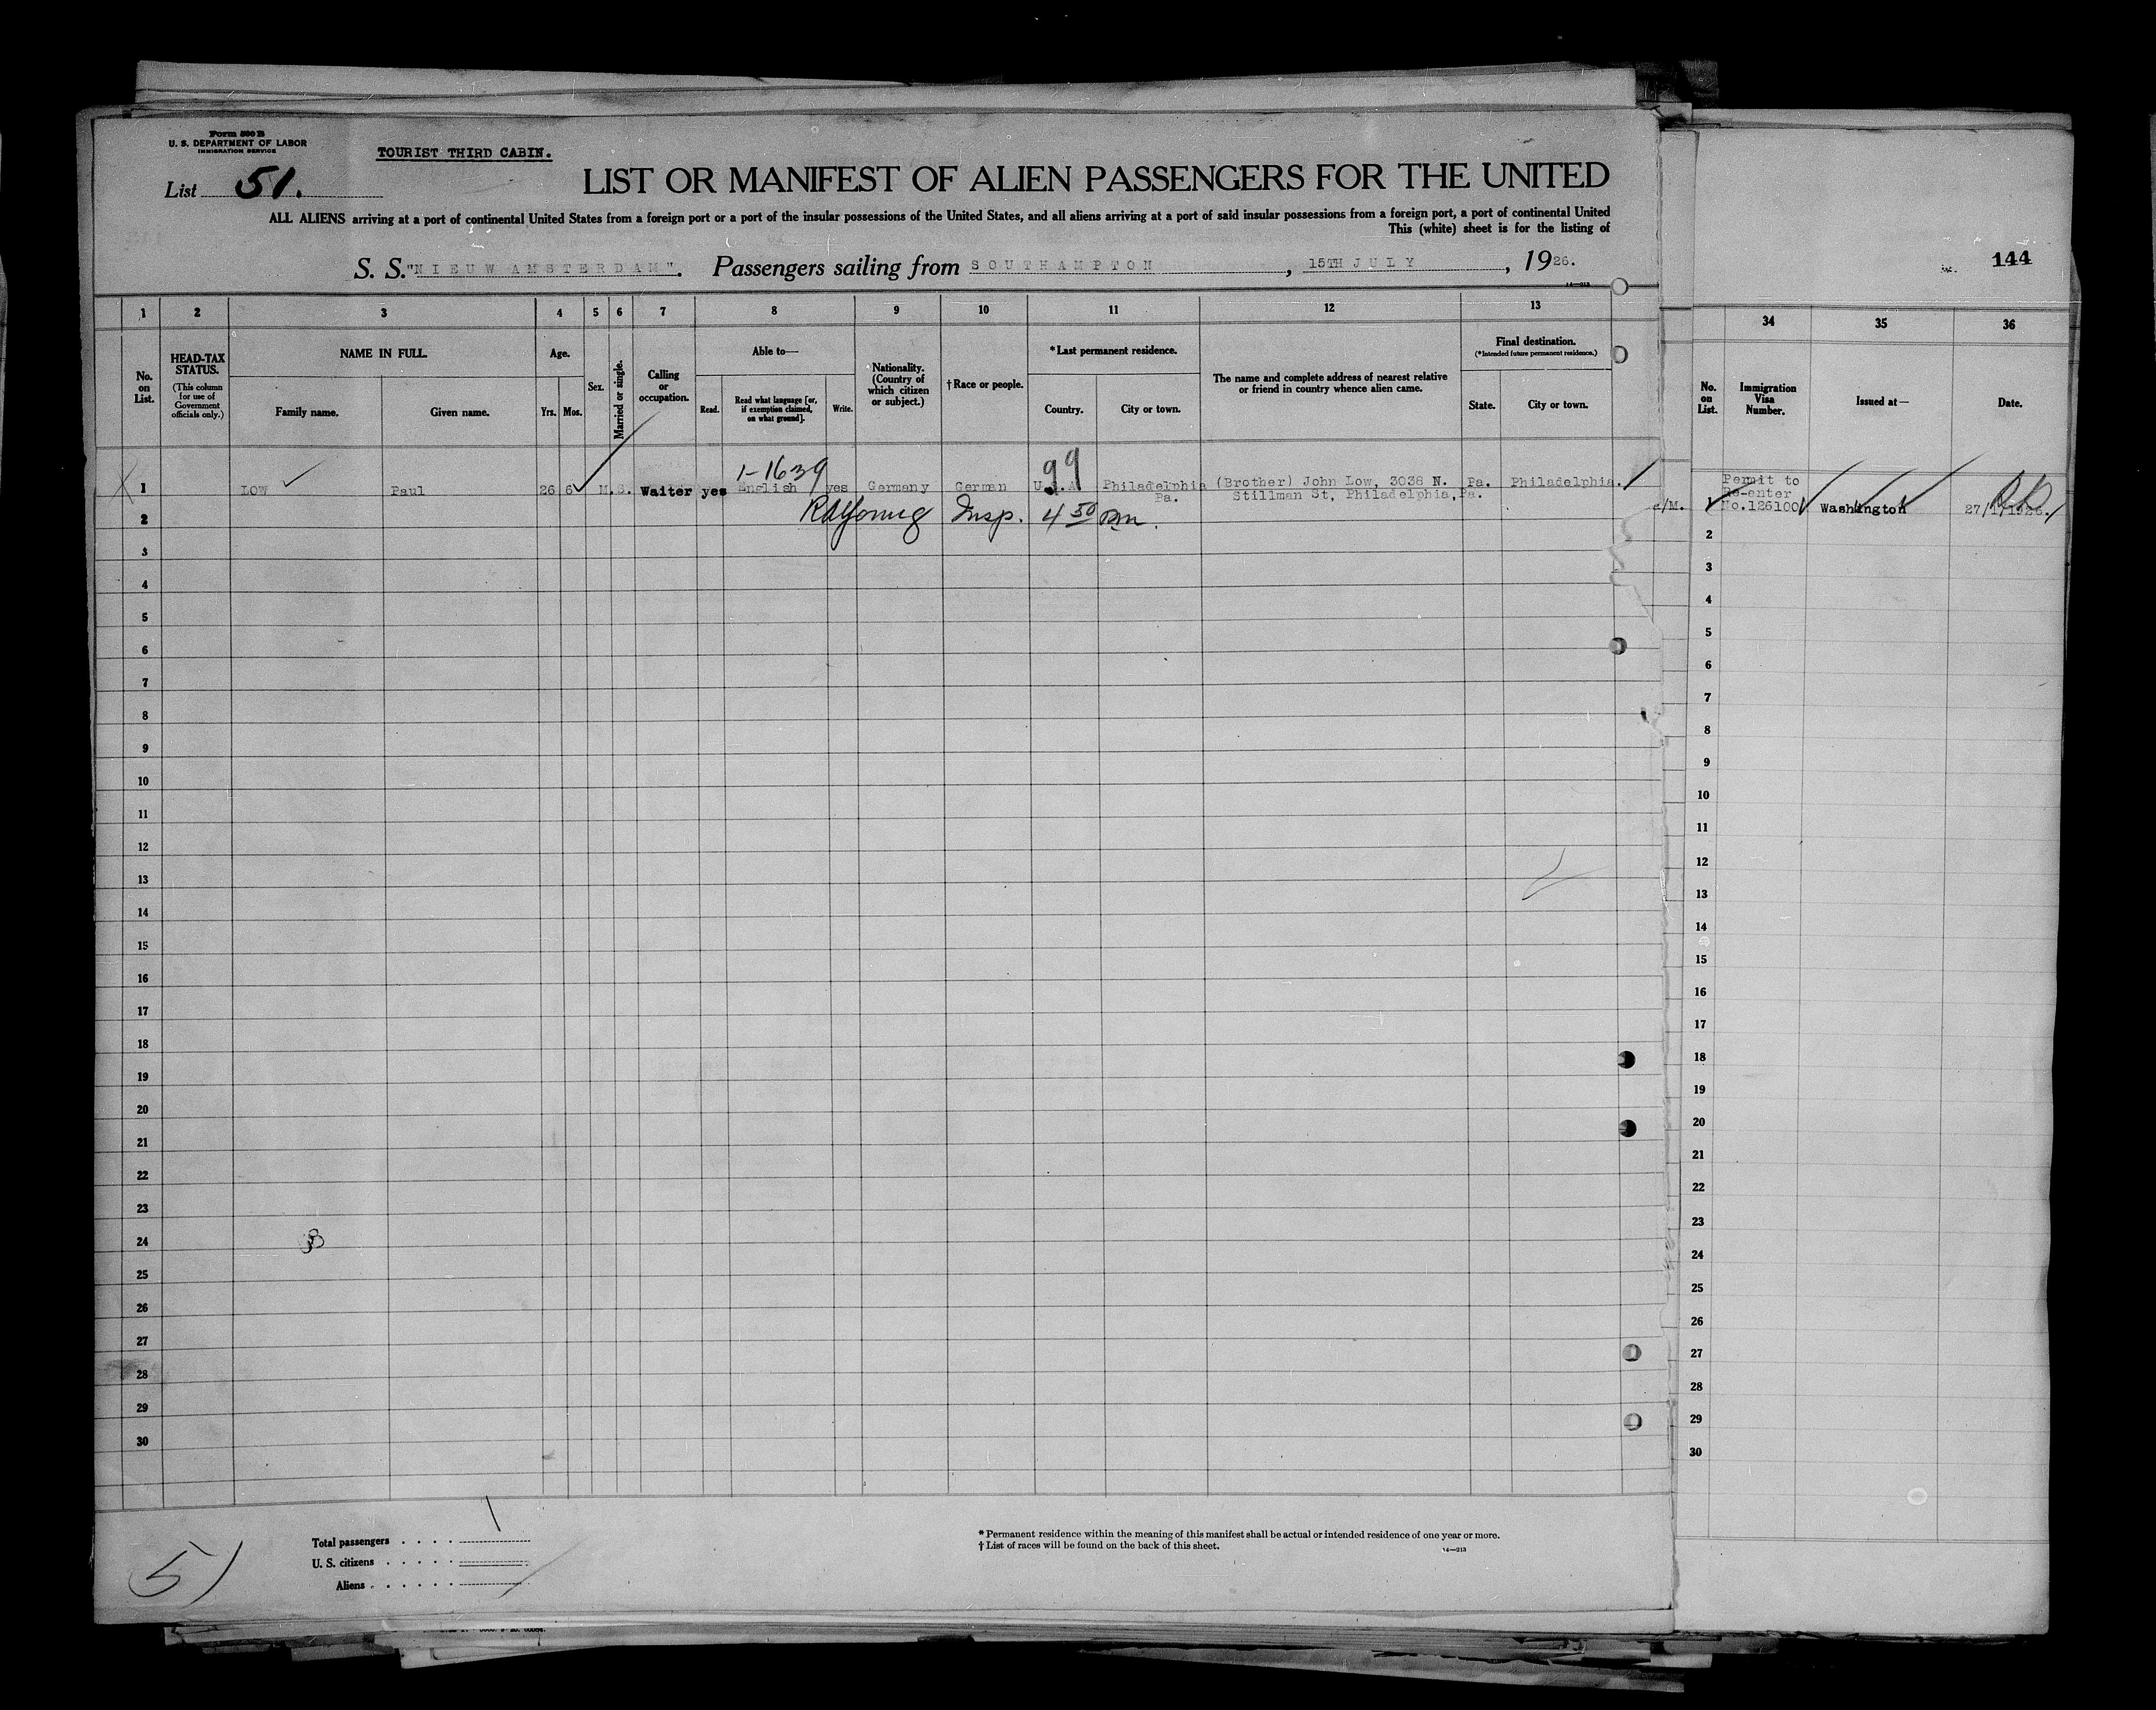 Form 500 B
U. S. DEPARTMENT OF LABOR
IMMIGRATION SERVICE
TOURIST THIRD CABIN.
List 51.
LIST OR MANIFEST OF ALIEN PASSENGERS FOR THE UNITED
ALL ALIENS arriving at a port of continental United States from a foreign port or a port of the insular possessions of the United States, and all aliens arriving at a port of said insular possessions from a foreign port, a port of continental United
This (white) sheet is for the listing of
S. S. "NIEUW AMSTERDAM". Passengers sailing from SOUTHAMPTON, 15TH JULY, 1926.
14—213
144
1 2 3 4 5 6 7 8 9 10 11 12 13
34 35 36
No. on List.
HEAD-TAX STATUS.
(This column for use of Government officials only.)
NAME IN FULL.
Family name.
Given name.
Age.
Yrs. Mos.
Sex.
Married or single.
Calling or occupation.
Able to—
Read.
Read what language [or, if exemption claimed, on what ground].
Write.
Nationality. (Country of which citizen or subject.)
† Race or people.
* Last permanent residence.
Country.
City or town.
The name and complete address of nearest relative or friend in country whence alien came.
Final destination.
(* Intended future permanent residence.)
State.
City or town.
No. on List.
Immigration Visa Number.
Issued at—
Date.
1-1639
99
1 LOW Paul 26 6 M. S. Waiter yes English yes Germany German U.S.A. Philadelphia (Brother) John Low, 3038 N. Pa. Philadelphia.
Pa. Stillman St, Philadelphia, Pa.
Permit to
Re-enter
1 No.126100 Washington
2 Insp. 4 50 pm.
3
4
5
6
7
8
9
10
11
12
13
14
15
16
17
18
19
20
21
22
23
24
25
26
27
28
29
30
2
3
4
5
6
7
8
9
10
11
12
13
14
15
16
17
18
19
20
21
22
23
24
25
26
27
28
29
30
Total passengers
U. S. citizens
Aliens
* Permanent residence within the meaning of this manifest shall be actual or intended residence of one year or more.
† List of races will be found on the back of this sheet.
14—213
51